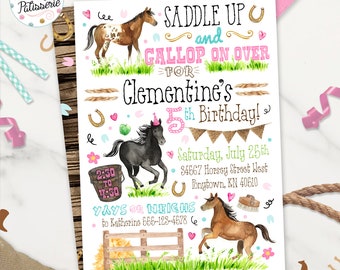 Patisserie
SADDLE UP
and
GALLOP ON OVER
FOR
Clementine's
5th Birthday!
Saturday, July 25th
34567 Horsey Street West
Ponytown, KN 40560
2:30
TO
4:30
YAYS OR NEIGHS
to Katherine 555-123-4578